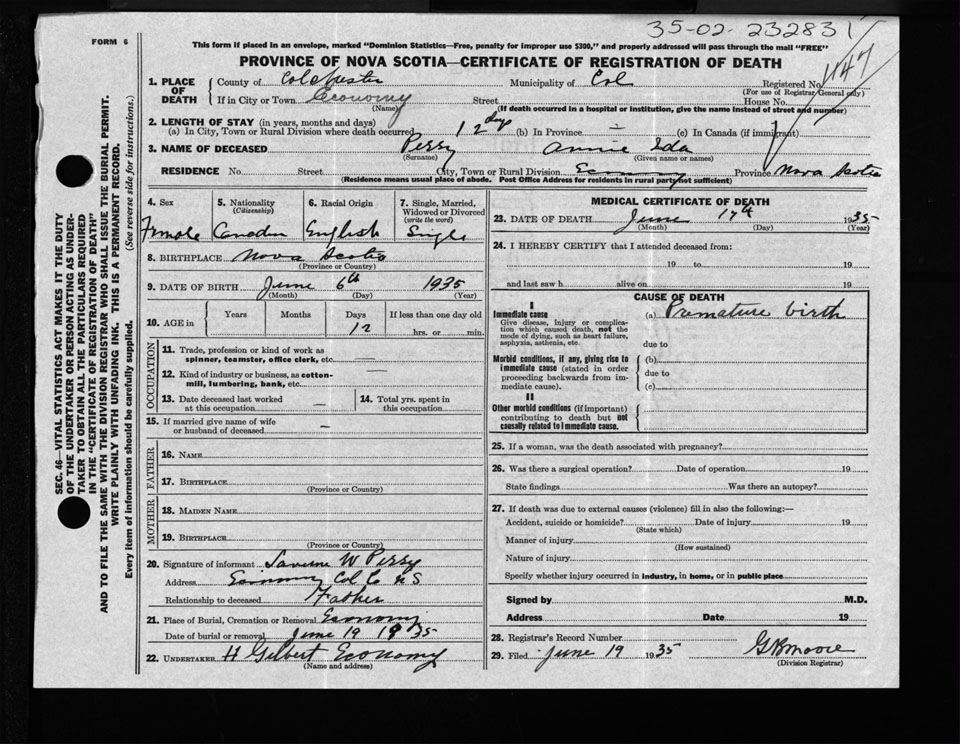 35-02-232831
FORM 6
1147
This form if placed in an envelope, marked "Dominion Statistics—Free, penalty for improper use $300," and properly addressed will pass through the mail "FREE"
PROVINCE OF NOVA SCOTIA—CERTIFICATE OF REGISTRATION OF DEATH
1. PLACE OF DEATH County of Colchester Municipality of Col Registered No.
(For use of Registrar General only)
If in City or Town Economy Street House No.
(Name) (If death occurred in a hospital or institution, give the name instead of street and number)
2. LENGTH OF STAY (in years, months and days)
(a) In City, Town or Rural Division where death occurred 12 dys (b) In Province — (c) In Canada (if immigrant)
3. NAME OF DECEASED Perry Annie Ida
(Surname) (Given name or names)
RESIDENCE No. Street City, Town or Rural Division Economy Province Nova Scotia
(Residence means usual place of abode. Post Office Address for residents in rural parts not sufficient)
4. Sex 5. Nationality (Citizenship) 6. Racial Origin 7. Single, Married, Widowed or Divorced (write the word)
Female Canadn English Single
8. BIRTHPLACE Nova Scotia
(Province or Country)
9. DATE OF BIRTH June 6th 1935
(Month) (Day) (Year)
10. AGE in Years Months Days If less than one day old
12 hrs. or min.
OCCUPATION
11. Trade, profession or kind of work as spinner, teamster, office clerk, etc. —
12. Kind of industry or business, as cotton-mill, lumbering, bank, etc. —
13. Date deceased last worked at this occupation — 14. Total yrs. spent in this occupation
15. If married give name of wife or husband of deceased —
FATHER
16. NAME
17. BIRTHPLACE
(Province or Country)
MOTHER
18. MAIDEN NAME
19. BIRTHPLACE
(Province or Country)
20. Signature of informant W Perry
Address Economy Col Co N S
Relationship to deceased Father
21. Place of Burial, Cremation or Removal Economy
Date of burial or removal June 19 1935
22. UNDERTAKER H Gilbert Economy
(Name and address)
MEDICAL CERTIFICATE OF DEATH
23. DATE OF DEATH June 17th 1935
(Month) (Day) (Year)
24. I HEREBY CERTIFY that I attended deceased from:
19 to 19
and last saw h alive on 19
CAUSE OF DEATH
I
Immediate cause (a) Premature birth
Give disease, injury or complication which caused death, not the mode of dying, such as heart failure, asphyxia, asthenia, etc.
due to
Morbid conditions, if any, giving rise to immediate cause (stated in order proceeding backwards from immediate cause).
(b)
due to
(c)
II
Other morbid conditions (if important) contributing to death but not causally related to immediate cause.
25. If a woman, was the death associated with pregnancy?
26. Was there a surgical operation? Date of operation 19
State findings Was there an autopsy?
27. If death was due to external causes (violence) fill in also the following:—
Accident, suicide or homicide? Date of injury 19
(State which)
Manner of injury
(How sustained)
Nature of injury
Specify whether injury occurred in industry, in home, or in public place
Signed by M.D.
Address Date 19
28. Registrar's Record Number
29. Filed June 19 1935 G B Moore
(Division Registrar)
SEC. 46—VITAL STATISTICS ACT MAKES IT THE DUTY
OF THE UNDERTAKER OR PERSON ACTING AS UNDER-
TAKER TO OBTAIN ALL THE PARTICULARS REQUIRED
IN THE "CERTIFICATE OF REGISTRATION OF DEATH"
AND TO FILE THE SAME WITH THE DIVISION REGISTRAR WHO SHALL ISSUE THE BURIAL PERMIT.
WRITE PLAINLY WITH UNFADING INK. THIS IS A PERMANENT RECORD.
Every item of information should be carefully supplied. (See reverse side for instructions.)